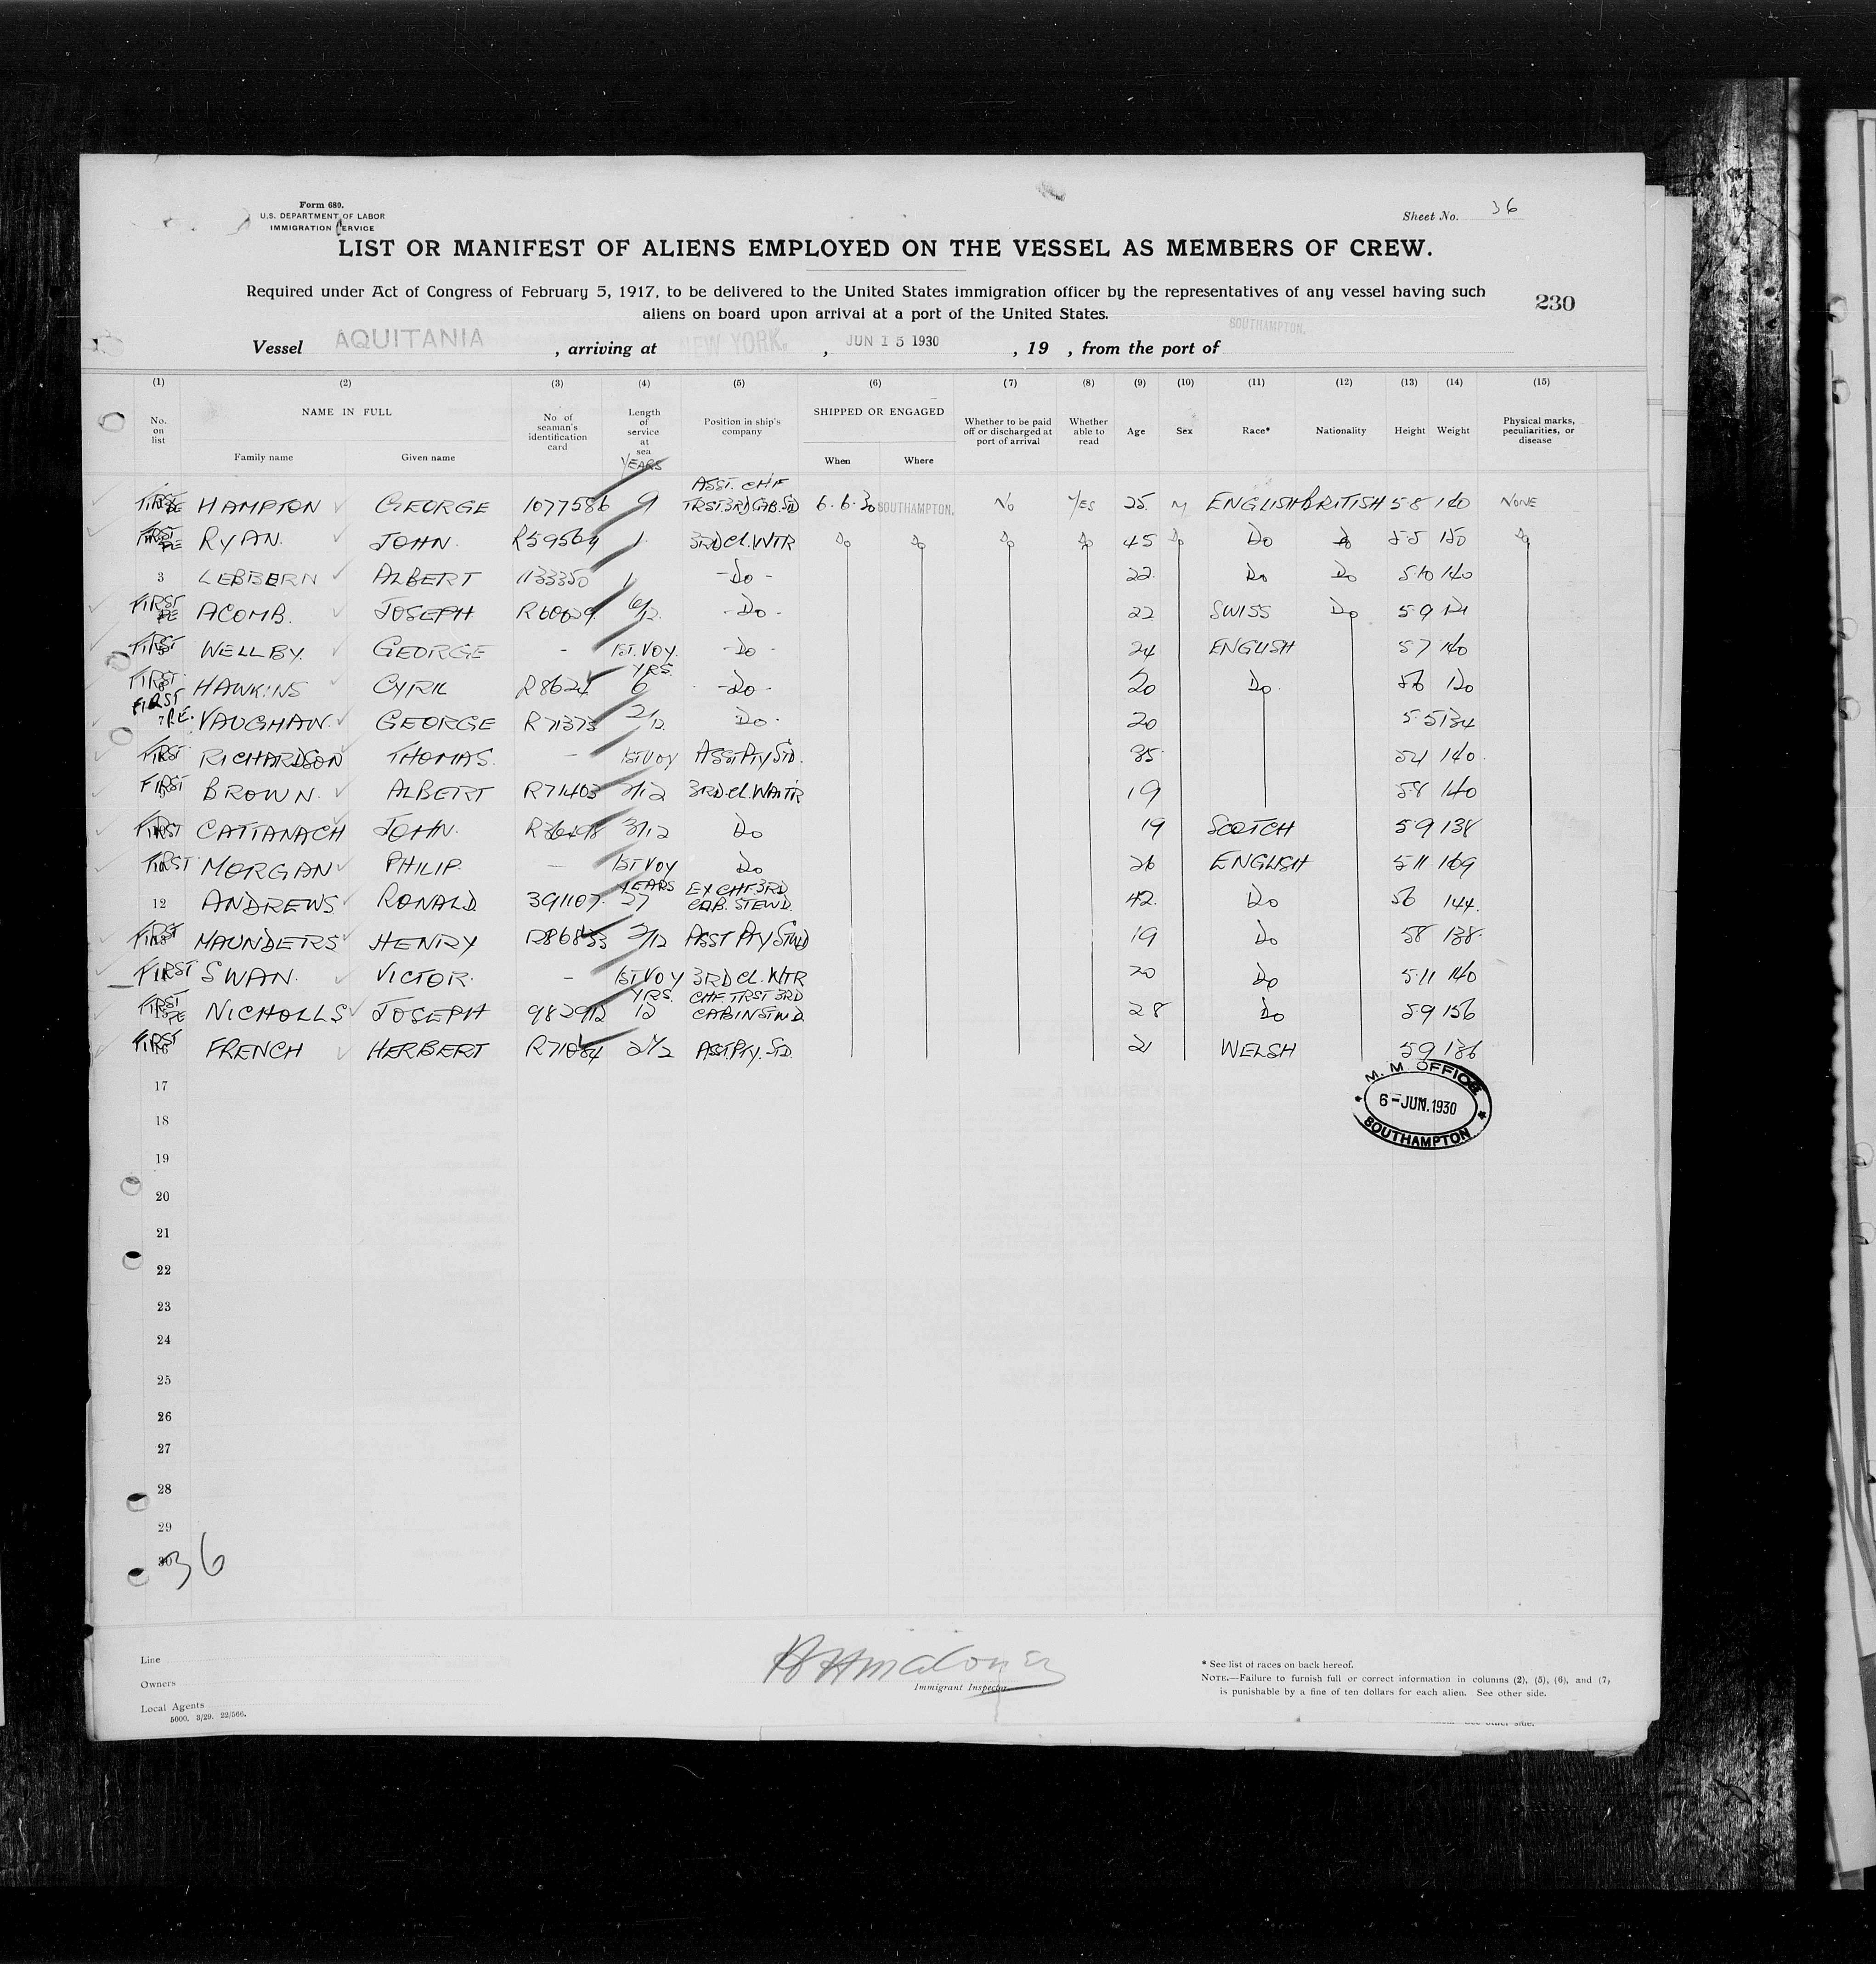 Form 689.
U.S. DEPARTMENT OF LABOR
IMMIGRATION SERVICE
Sheet No. 36
LIST OR MANIFEST OF ALIENS EMPLOYED ON THE VESSEL AS MEMBERS OF CREW.
Required under Act of Congress of February 5, 1917, to be delivered to the United States immigration officer by the representatives of any vessel having such
aliens on board upon arrival at a port of the United States.
230
Vessel AQUITANIA, arriving at NEW YORK., JUN 15 1930, 19 , from the port of SOUTHAMPTON.
(1) (2) (3) (4) (5) (6) (7) (8) (9) (10) (11) (12) (13) (14) (15)
No. on list NAME IN FULL Family name Given name No. of seaman's identification card Length of service at sea Position in ship's company SHIPPED OR ENGAGED When Where Whether to be paid off or discharged at port of arrival Whether able to read Age Sex Race* Nationality Height Weight Physical marks, peculiarities, or disease
YEARS
FIRST HAMPTON GEORGE 1077586 9 ASST. CHF TRST. 3RD CAB. SD 6.6.30 SOUTHAMPTON. NO YES 25. M ENGLISH BRITISH 5 8 140 NONE
FIRST PE RYAN. JOHN. R59564 1 3RD CL. WTR Do Do Do Do 45 Do Do Do 5 5 150 Do
3 LEBBERN ALBERT 1133350 1 - Do - 22. Do Do 5 10 140
FIRST PE ACOMB. JOSEPH R60629 6/12 - Do - 22 SWISS Do 5 9
FIRST WELLBY. GEORGE - 1ST. VOY. - Do - 24 ENGLISH 5 7 140
FIRST HAWKINS CYRIL YRS. 6 - Do - 20 Do. 5 6 120
FIRST 7 P.E. VAUGHAN. GEORGE R71373 2/12 Do. 20 5 5 134
FIRST RICHARDSON THOMAS. - 1ST VOY ASST PTY STD. 35. 140.
FIRST BROWN. ALBERT R71403 2/12 3RD CL. WAITR 19 5 8 140
FIRST CATTANACH JOHN. 3/12 Do 19 SCOTCH 5 9 138
FIRST MORGAN PHILIP. - 1ST VOY Do 26 ENGLISH 5 11 169
12 ANDREWS RONALD. 391107. YEARS 27 EX CHF. 3RD CAB. STEWD. 42. Do 5 6 144.
FIRST MAUNDERS HENRY 2/12 ASST PTY STWD 19 Do 5 8 138.
FIRST SWAN. VICTOR. - 1ST VOY 3RD CL. WTR 20 Do 5.11 140
FIRST PE NICHOLLS JOSEPH 982912 YRS. 12 CHF. TRST 3RD CABIN STWD. 28 Do 5 9 156
FIRST 16 FRENCH HERBERT R71084 ASST. PTY. STD. 21 WELSH 5 9 136
M. M. OFFICE
6 - JUN. 1930
SOUTHAMPTON
17
18
19
20
21
22
23
24
25
26
27
28
29
30
36
Line
Owners
Local Agents
5000. 3/29. 22/566.
Immigrant Inspector.
* See list of races on back hereof.
NOTE.—Failure to furnish full or correct information in columns (2), (5), (6), and (7)
is punishable by a fine of ten dollars for each alien. See other side.